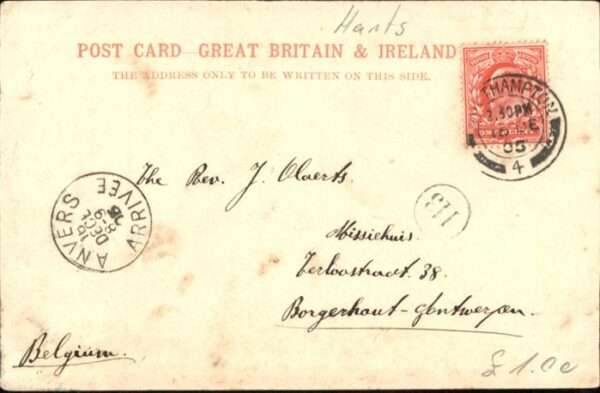 Harts
POST CARD-GREAT BRITAIN & IRELAND
THE ADDRESS ONLY TO BE WRITTEN ON THIS SIDE.
THAMPTON
.30PM
05
4
The Rev. J. Claerts.
113
ANVERS
ARRIVEE
Missiehuis.
Terloostraat. 38.
Borgerhout-Antwerpen.
Belgium.
£ 1.00